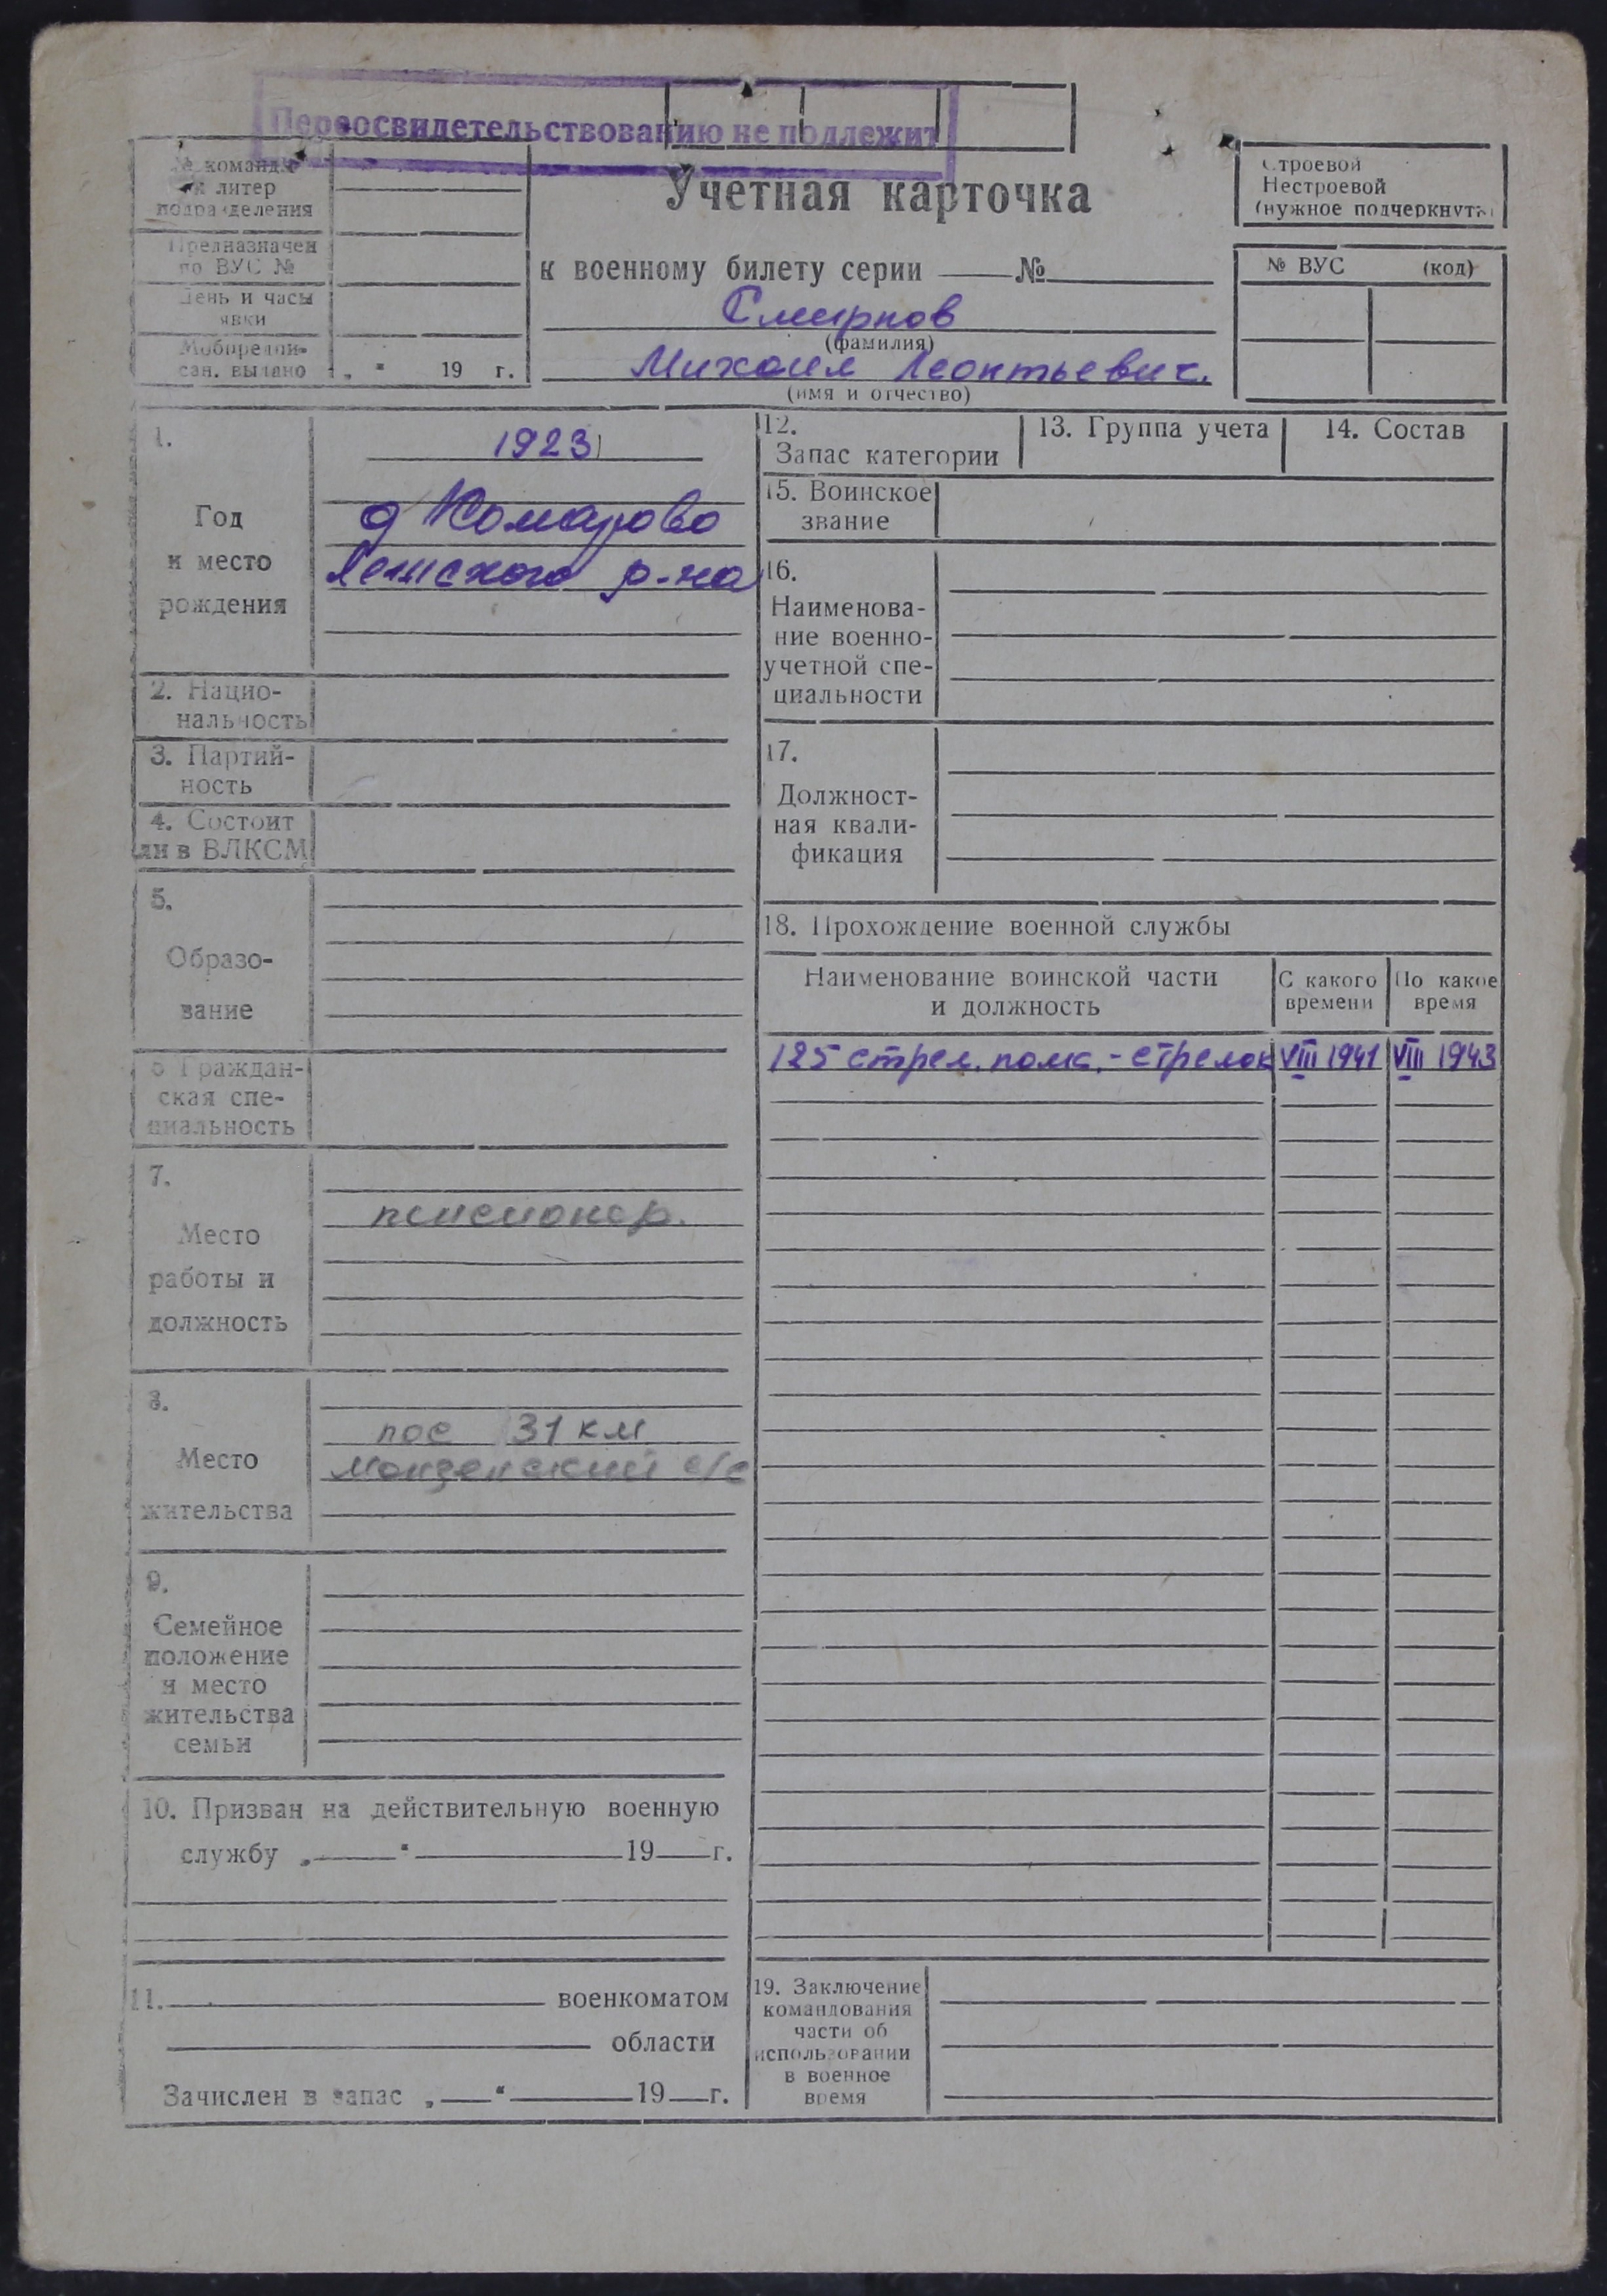 Переосвидетельствованию не подлежит
№ команды
и литер
подразделения
Предназначен
по ВУС №
День и часы
явки
Мобпредпи-
сан. выдано „ “ 19 г.
Учетная карточка
к военному билету серии №
Смирнов
(фамилия)
Михаил Леонтьевич.
(имя и отчество)
Строевой
Нестроевой
(нужное подчеркнуть)
№ ВУС (код)
1.
Год
и место
рождения
1923
д Комарово
Лежского р-на
2. Нацио-
нальность
3. Партий-
ность
4. Состоит
ли в ВЛКСМ
5.
Образо-
вание
6 Граждан-
ская спе-
циальность
7.
Место
работы и
должность
пенсионер.
8.
Место
жительства
пос 31 км
Монзенский с/с
9.
Семейное
положение
и место
жительства
семьи
10. Призван на действительную военную
службу „ “ 19 г.
11. военкоматом
области
Зачислен в запас „ “ 19 г.
12.
Запас категории
13. Группа учета
14. Состав
15. Воинское
звание
16.
Наименова-
ние военно-
учетной спе-
циальности
17.
Должност-
ная квали-
фикация
18. Прохождение военной службы
Наименование воинской части
и должность
С какого
времени
По какое
время
125 стрел. полк. - стрелок VIII 1941 VIII 1943
19. Заключение
командования
части об
использовании
в военное
время